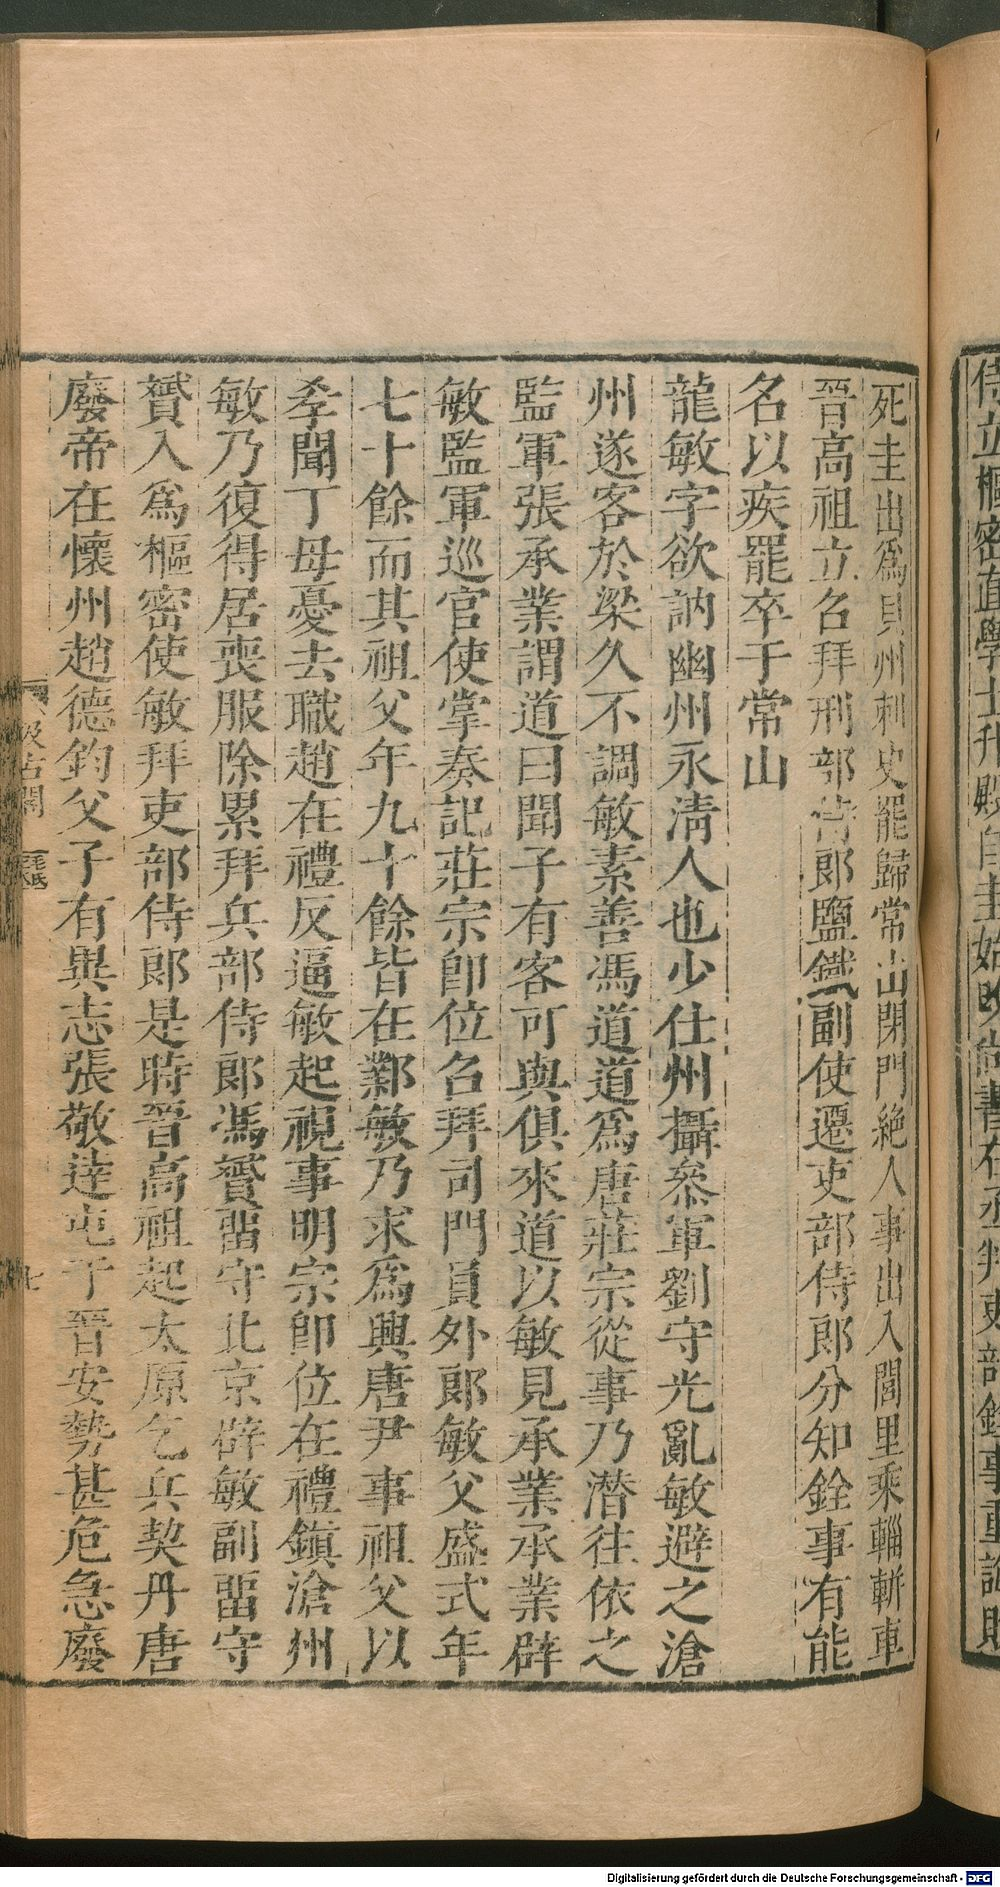 侍立樞密直學士升殿自圭始改尚書右丞判吏部銓事重誨敗
死圭出爲貝州刺史罷歸常山閉門絶人事出入閭里乘輜軿車
晉高祖立召拜刑部侍郎鹽鐵副使遷吏部侍郎分知銓事有能
名以疾罷卒于常山
龍敏字欲訥幽州永淸人也少仕州攝叅軍劉守光亂敏避之滄
州遂客於梁久不調敏素善馮道道爲唐莊宗從事乃潛往依之
監軍張承業謂道曰聞子有客可與俱來道以敏見承業承業辟
敏監軍巡官使掌奏記莊宗卽位召拜司門員外郎敏父盛式年
七十餘而其祖父年九十餘皆在鄴敏乃求爲興唐尹事祖父以
孝聞丁母憂去職趙在禮反逼敏起視事明宗卽位在禮鎭滄州
敏乃復得居喪服除累拜兵部侍郎馮贇留守北京辟敏副留守
贇入爲樞密使敏拜吏部侍郎是時晉高祖起太原乞兵契丹唐
廢帝在懷州趙德鈞父子有異志張敬達屯于晉安勢甚危急廢
汲古閣
毛氏
七
Digitalisierung gefördert durch die Deutsche Forschungsgemeinschaft - DFG